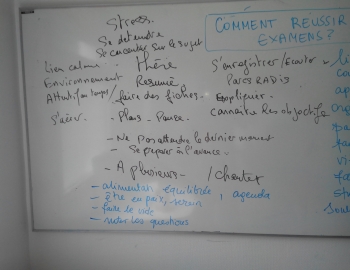 Stress.
Se détendre
Se concentrer sur le sujet
COMMENT REUSSIR
EXAMENS?
Lien calme - thère
Environnement Resumé
Attentif au temps / faire des fiches.
S'aérer. - Plans - Pause.
S'enregistrer / Ecouter
Expliquer.
connaître les objectifs
- Ne pas attendre le dernier moment
- Se préparer à l'avance.
- A plusieurs - / chanter
- alimentation équilibrée, agenda
- être en paix, serein
- faire le vide
- noter les questions